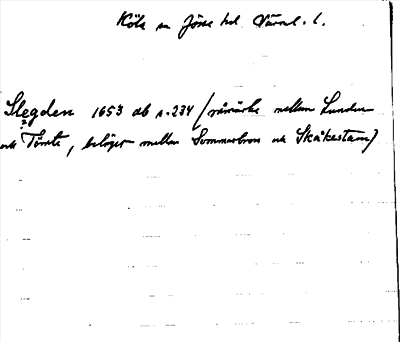 Köla sn Jösse hd Värml. l.
Slegden 1653 db s. 234 (råmärke mellan Lunden
och Tömte, beläget mellan Sommarbron och Skåkestam)